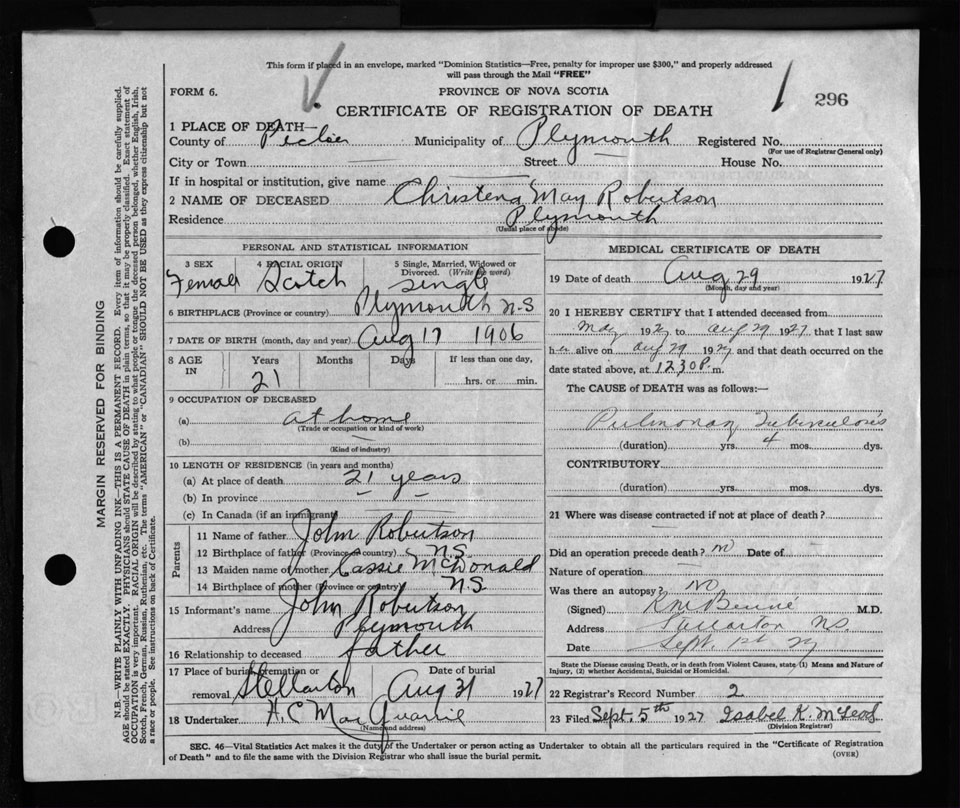 This form if placed in an envelope, marked "Dominion Statistics—Free, penalty for improper use $300," and properly addressed
will pass through the Mail "FREE"
FORM 6.
PROVINCE OF NOVA SCOTIA
296
CERTIFICATE OF REGISTRATION OF DEATH
1 PLACE OF DEATH—
County of Pictou Municipality of Plymouth Registered No.
(For use of Registrar General only)
City or Town Street House No.
If in hospital or institution, give name
2 NAME OF DECEASED Christena May Robertson
Residence Plymouth
(Usual place of abode)
PERSONAL AND STATISTICAL INFORMATION
3 SEX 4 RACIAL ORIGIN 5 Single, Married, Widowed or Divorced. (Write the word)
Female Scotch Single
6 BIRTHPLACE (Province or country) Plymouth N-S
7 DATE OF BIRTH (month, day and year) Aug 17 1906
8 AGE IN Years Months Days If less than one day,
21 hrs. or min.
9 OCCUPATION OF DECEASED
(a) at home
(Trade or occupation or kind of work)
(b)
(Kind of industry)
10 LENGTH OF RESIDENCE (in years and months)
(a) At place of death 21 years
(b) In province
(c) In Canada (if an immigrant)
Parents
11 Name of father John Robertson
12 Birthplace of father (Province or country) N.S.
13 Maiden name of mother Cassie McDonald
14 Birthplace of mother (Province or country) NS
15 Informant's name John Robertson
Address Plymouth
16 Relationship to deceased father
17 Place of burial, cremation or removal Stellarton Date of burial Aug 31 1927
18 Undertaker H. C MacQuarrie
(Name and address)
MEDICAL CERTIFICATE OF DEATH
19 Date of death Aug 29 1927
(Month, day and year)
20 I HEREBY CERTIFY that I attended deceased from
May 1927 to Aug 29 1927 that I last saw
her alive on Aug 29 1927 and that death occurred on the
date stated above, at 12 30 P. m.
The CAUSE of DEATH was as follows:—
Pulmonary Tuberculosis
(duration) yrs. 4 mos. dys.
CONTRIBUTORY
(duration) yrs. mos. dys.
21 Where was disease contracted if not at place of death?
Did an operation precede death? no Date of
Nature of operation
Was there an autopsy? NO
(Signed) M.D.
Address Stellarton NS.
Date Sept. 1st 27
State the Disease causing Death, or in death from Violent Causes, state (1) Means and Nature of
Injury, (2) whether Accidental, Suicidal or Homicidal.
22 Registrar's Record Number 2
23 Filed Sept. 5th 1927 Isabel K. McLeod
(Division Registrar)
SEC. 46—Vital Statistics Act makes it the duty of the Undertaker or person acting as Undertaker to obtain all the particulars required in the "Certificate of Registration
of Death" and to file the same with the Division Registrar who shall issue the burial permit.
(OVER)
MARGIN RESERVED FOR BINDING
N.B.—WRITE PLAINLY WITH UNFADING INK—THIS IS A PERMANENT RECORD. Every item of information should be carefully supplied.
AGE should be stated EXACTLY. PHYSICIANS should STATE CAUSE OF DEATH in plain terms, so that it may be properly classified. Exact statement of
OCCUPATION is very important. RACIAL ORIGIN will be described by stating to what people or tongue the deceased person belonged, whether English, Irish,
Scotch, French, German, Russian, Ruthenian, etc. The terms "AMERICAN" or "CANADIAN" SHOULD NOT BE USED as they express citizenship but not
a race or people. See instructions on back of Certificate.